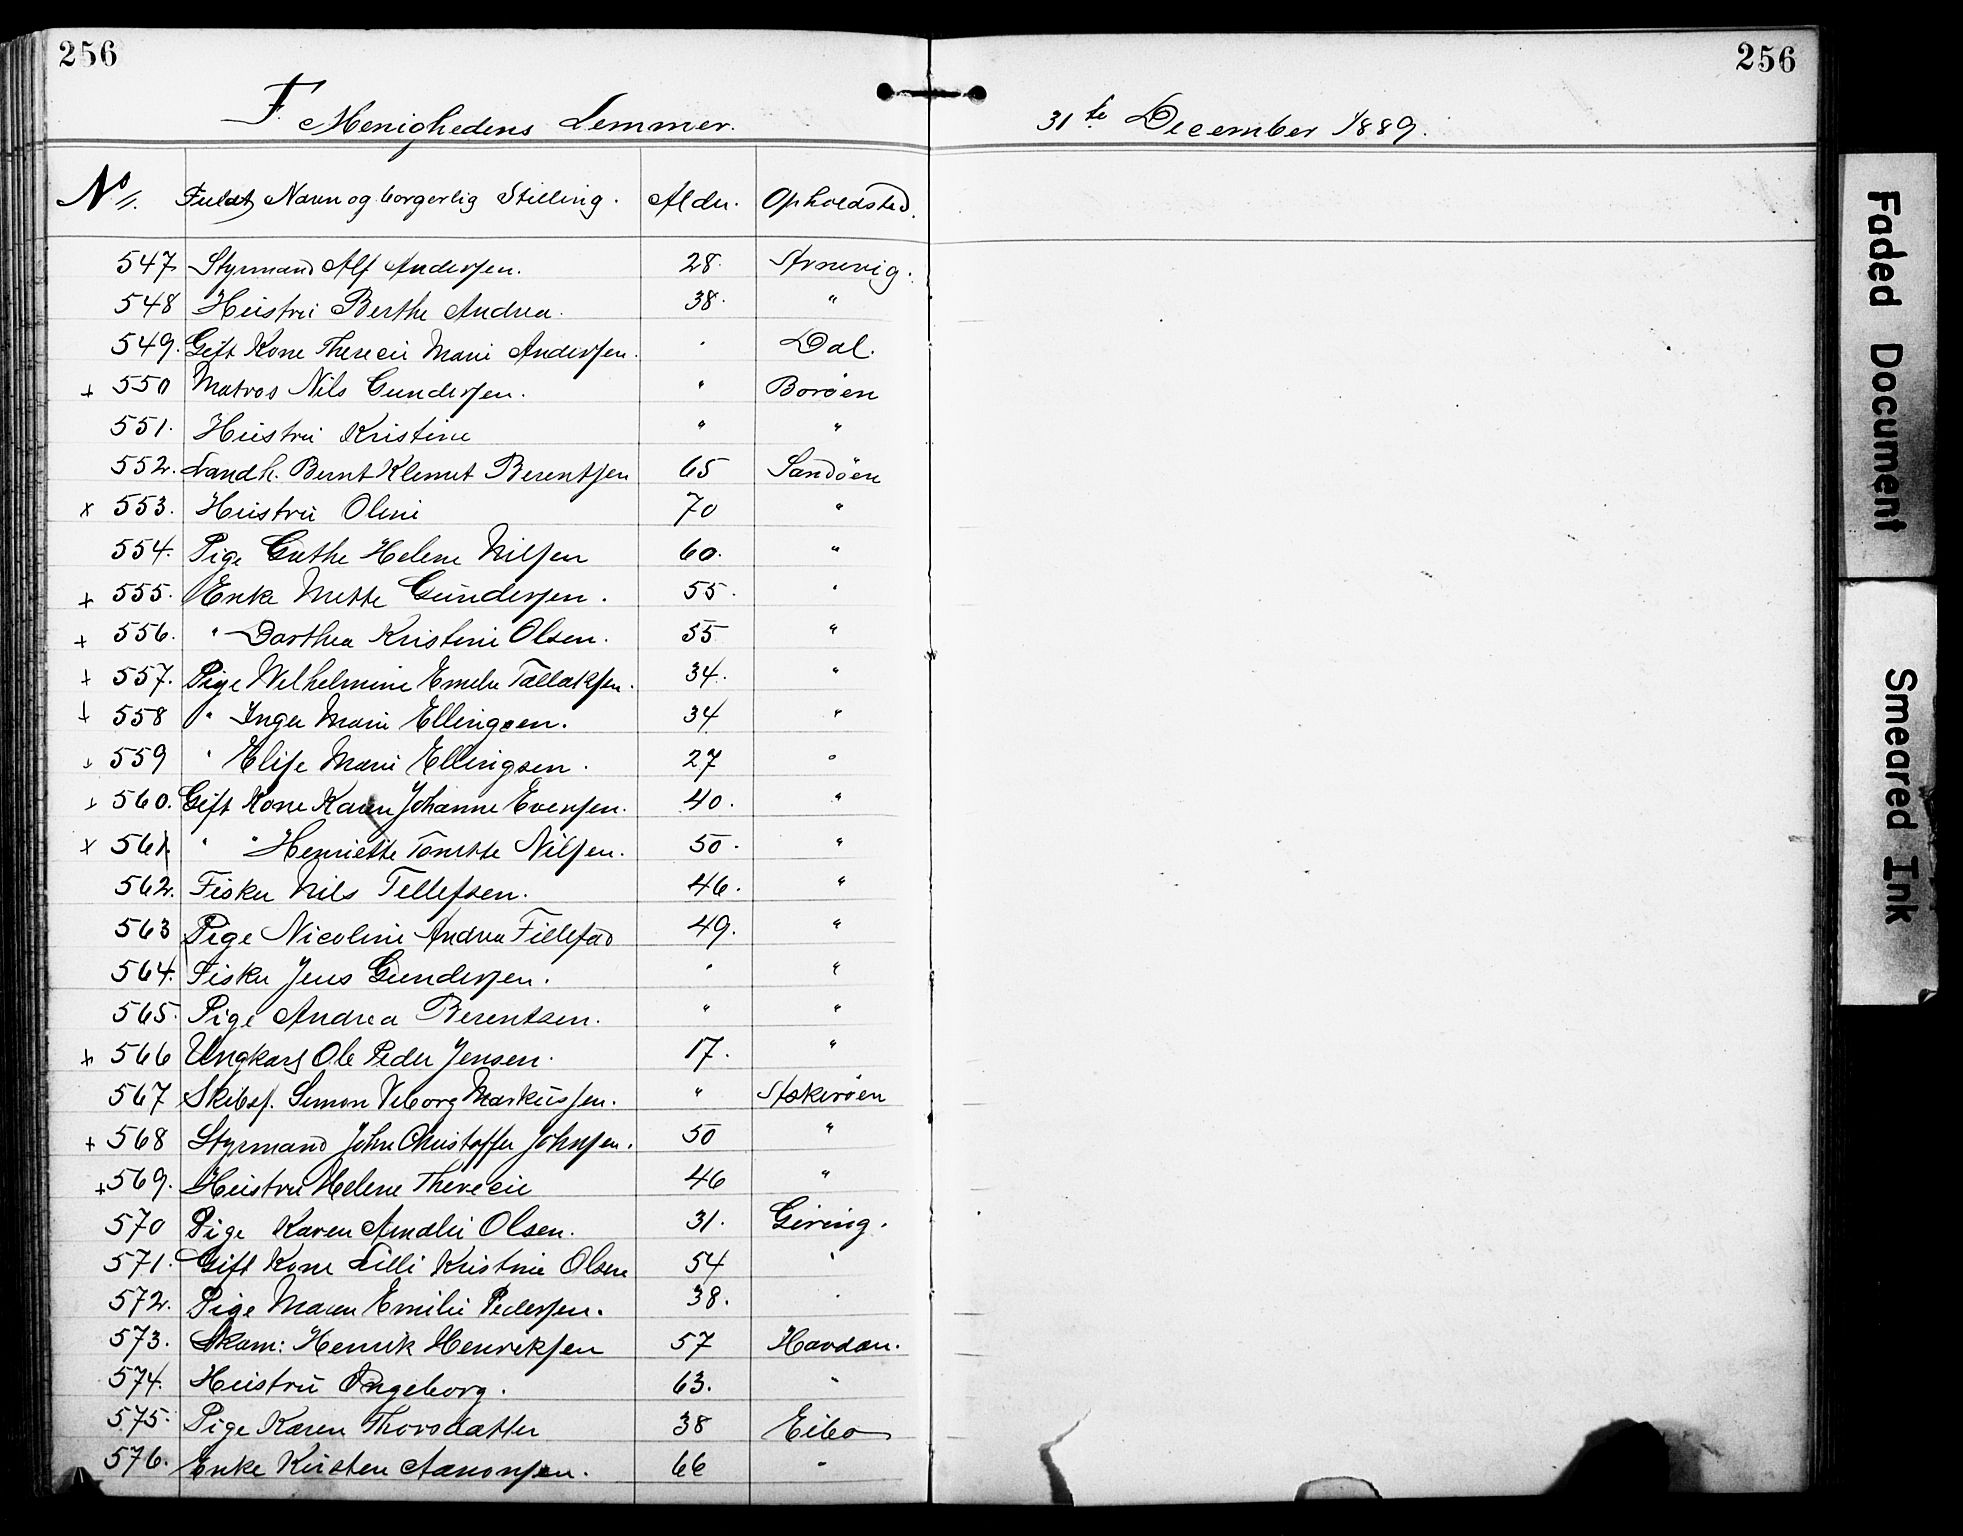 256
256
F. Menighedens Lemmer.
31te December 1889.
No. Fuldt Navn og borgerlig Stilling. Alder. Opholdsted.
547 Styrmand Alf Andersen. 28. Arnevig.
548 Hustru Berthe Andrea. 38. "
549. Gift Kone Therecie Marie Andersen. " Dal.
+ 550 Matros Nils Gundersen. " Borøen
551. Hustru Kristine " "
552. Landh. Bernt Klemet Berentsen 65 Sandøen
x 553. Hustru Oline 70 "
554. Pige Guthe Helene Nilsen 60. "
+ 555. Enke Mette Gundersen. 55. "
+ 556. " Dorthea Kristine Olsen. 55 "
+ 557. Pige Wilhelmine Emelie Tallaksen. 34. "
+ 558 " Inger Marie Ellingsen. 34 "
+ 559 " Elise Marie Ellingsen. 27 "
+ 560. Gift Kone Karen Johanne Evensen. 40. "
x 561. " " Henriette Tomette Nilsen. 50. "
562. Fisker Nils Tellefsen. 46. "
563 Pige Nicoline Andrea 49. "
564. Fisker Jens Gundersen. " "
565. Pige Andrea Berentsen. " "
+ 566 Ungkarl Ole Peder Jensen. 17. "
567 Skibsf. Simon Viborg Markussen. " Stokerøen
+ 568 Styrmand John Christoffer Johnsen. 50 "
+ 569. Hustru Helene Therecie 46 "
570 Pige Karen Amalie Olsen. 31. Geving.
571. Gift Kone Lilli Kristine Olsen 54 "
572. Pige Maren Emilie Pedersen. 38. "
573. Skom: Henrik Henriksen 57 Havdan.
574. Hustru Ingeborg. 63. "
575. Pige Karen Thorsdatter 38 Eibo
576. Enke Kirsten Aanonsen. 66 "
Faded Document
Smeared Ink